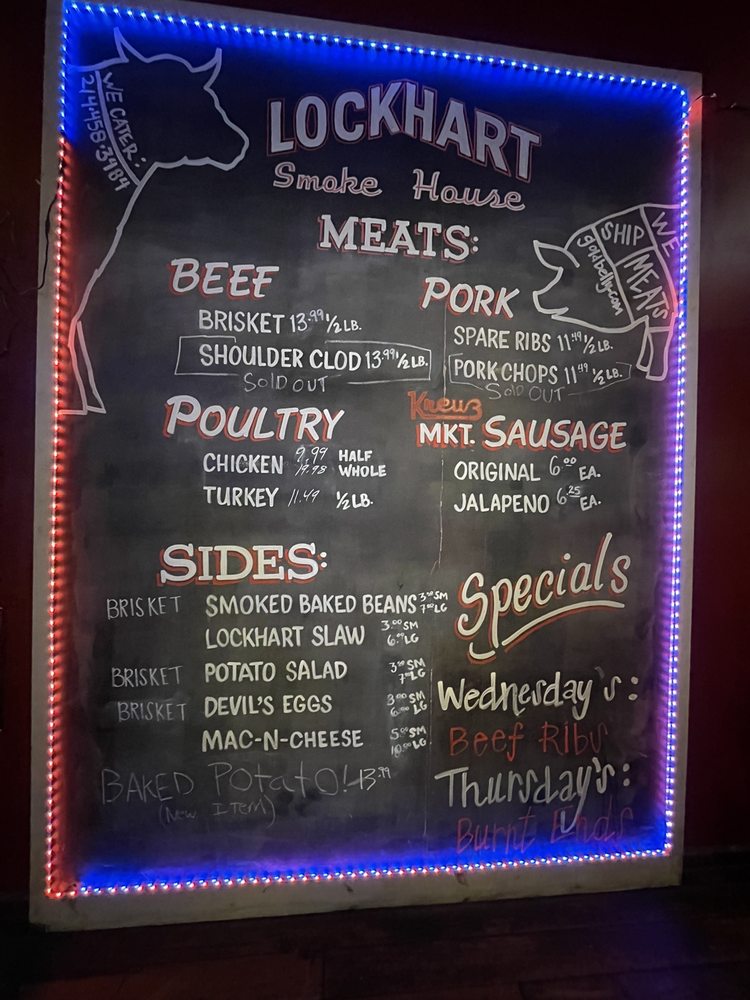 WE CATER:
214.458.3484
LOCKHART
Smoke House
MEATS:
WE
SHIP
MEATS
goldbelly.com
BEEF
BRISKET 13.99 1/2 LB.
SHOULDER CLOD 13.99 1/2 LB.
SOLD OUT
PORK
SPARE RIBS 11.49 1/2 LB.
PORK CHOPS 11.49 1/2 LB.
SOLD OUT
POULTRY
CHICKEN 9.99 HALF
19.98 WHOLE
TURKEY 11.49 1/2 LB.
Kreuz
MKT. SAUSAGE
ORIGINAL 6.00 EA.
JALAPENO 6.25 EA.
SIDES:
BRISKET SMOKED BAKED BEANS SM
LG
LOCKHART SLAW 3.00 SM
6.00 LG
BRISKET POTATO SALAD SM
LG
BRISKET DEVIL'S EGGS 3.00 SM
6.00 LG
MAC-N-CHEESE 5.00 SM
10.00 LG
BAKED POTATO! 13.99
(NEW ITEM)
Specials
Wednesday's:
Beef Ribs
Thursday's:
Burnt Ends